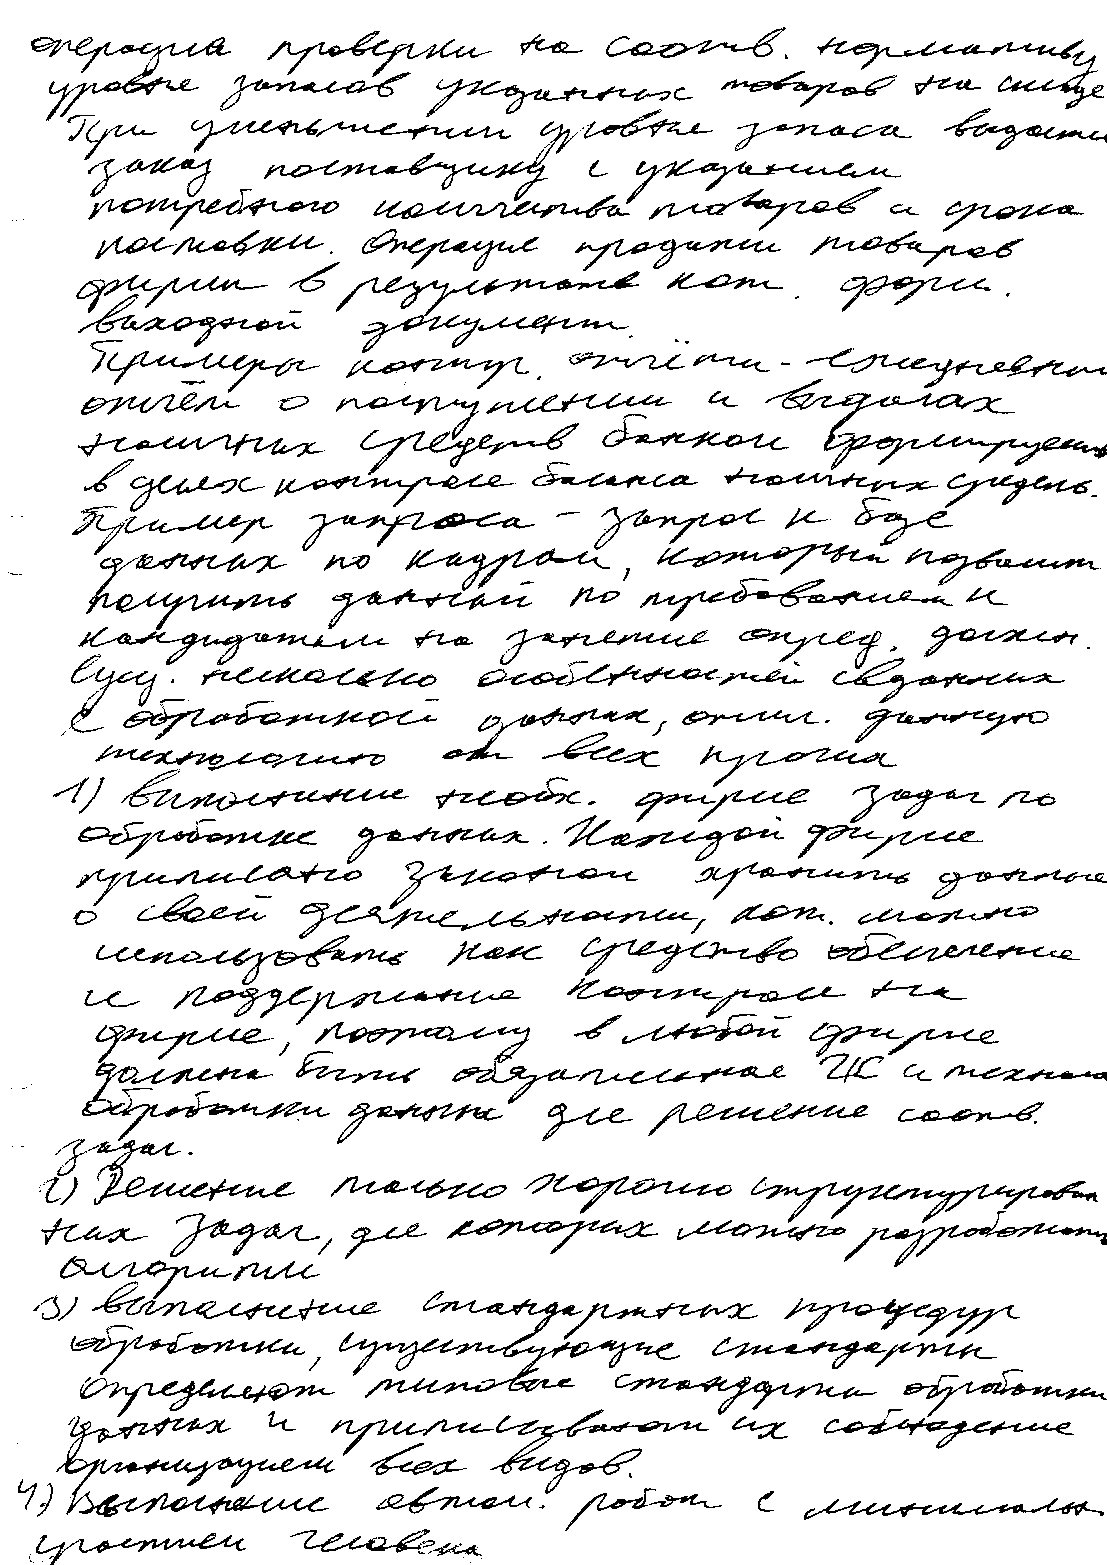 операция проверки на соотв. нормативу
уровне запасов указанных товаров на складе
При уменьшении уровне запаса выдаёт
заказ поставщику с указанием
потребного количества товаров и срока
поставки. Операция продажи товаров
фирмы в результате кот. форм.
выходной документ.
Примеры контр. отчёта - ежедневный
отчёт о поступлении и выдачах
наличных средств банком формируем
в целях контроле баланса наличных средств.
Пример запроса - запрос к базе
данных по кадрам, который позволит
получить данный по требованием к
кандидатам на занятие опред. должн.
Сущ. несколько особенностей связанных
с обработкой данных, отлич. данную
технологию от всех прочих
1) выполнение необх. фирме задач по
обработке данных. Каждой фирме
приписано законом хранить данные
о своей деятельности, кот. можно
использовать как средство обеспечение
и поддержание контроле на
фирме, поэтому в любой фирме
должна быть обязательное ИС и технол
обработки данных для решение соотв.
задач.
2) Решение только хорошо структурирован
ных задач, для которых можно разработать
алгоритм
3) выполнение стандартных процедур
обработки, существующие стандарты
определяют типовые стандарты обработки
данных и приписывают их соблюдение
организациям всех видов.
4) Выполнение автом. работ с минимальн
участием человека